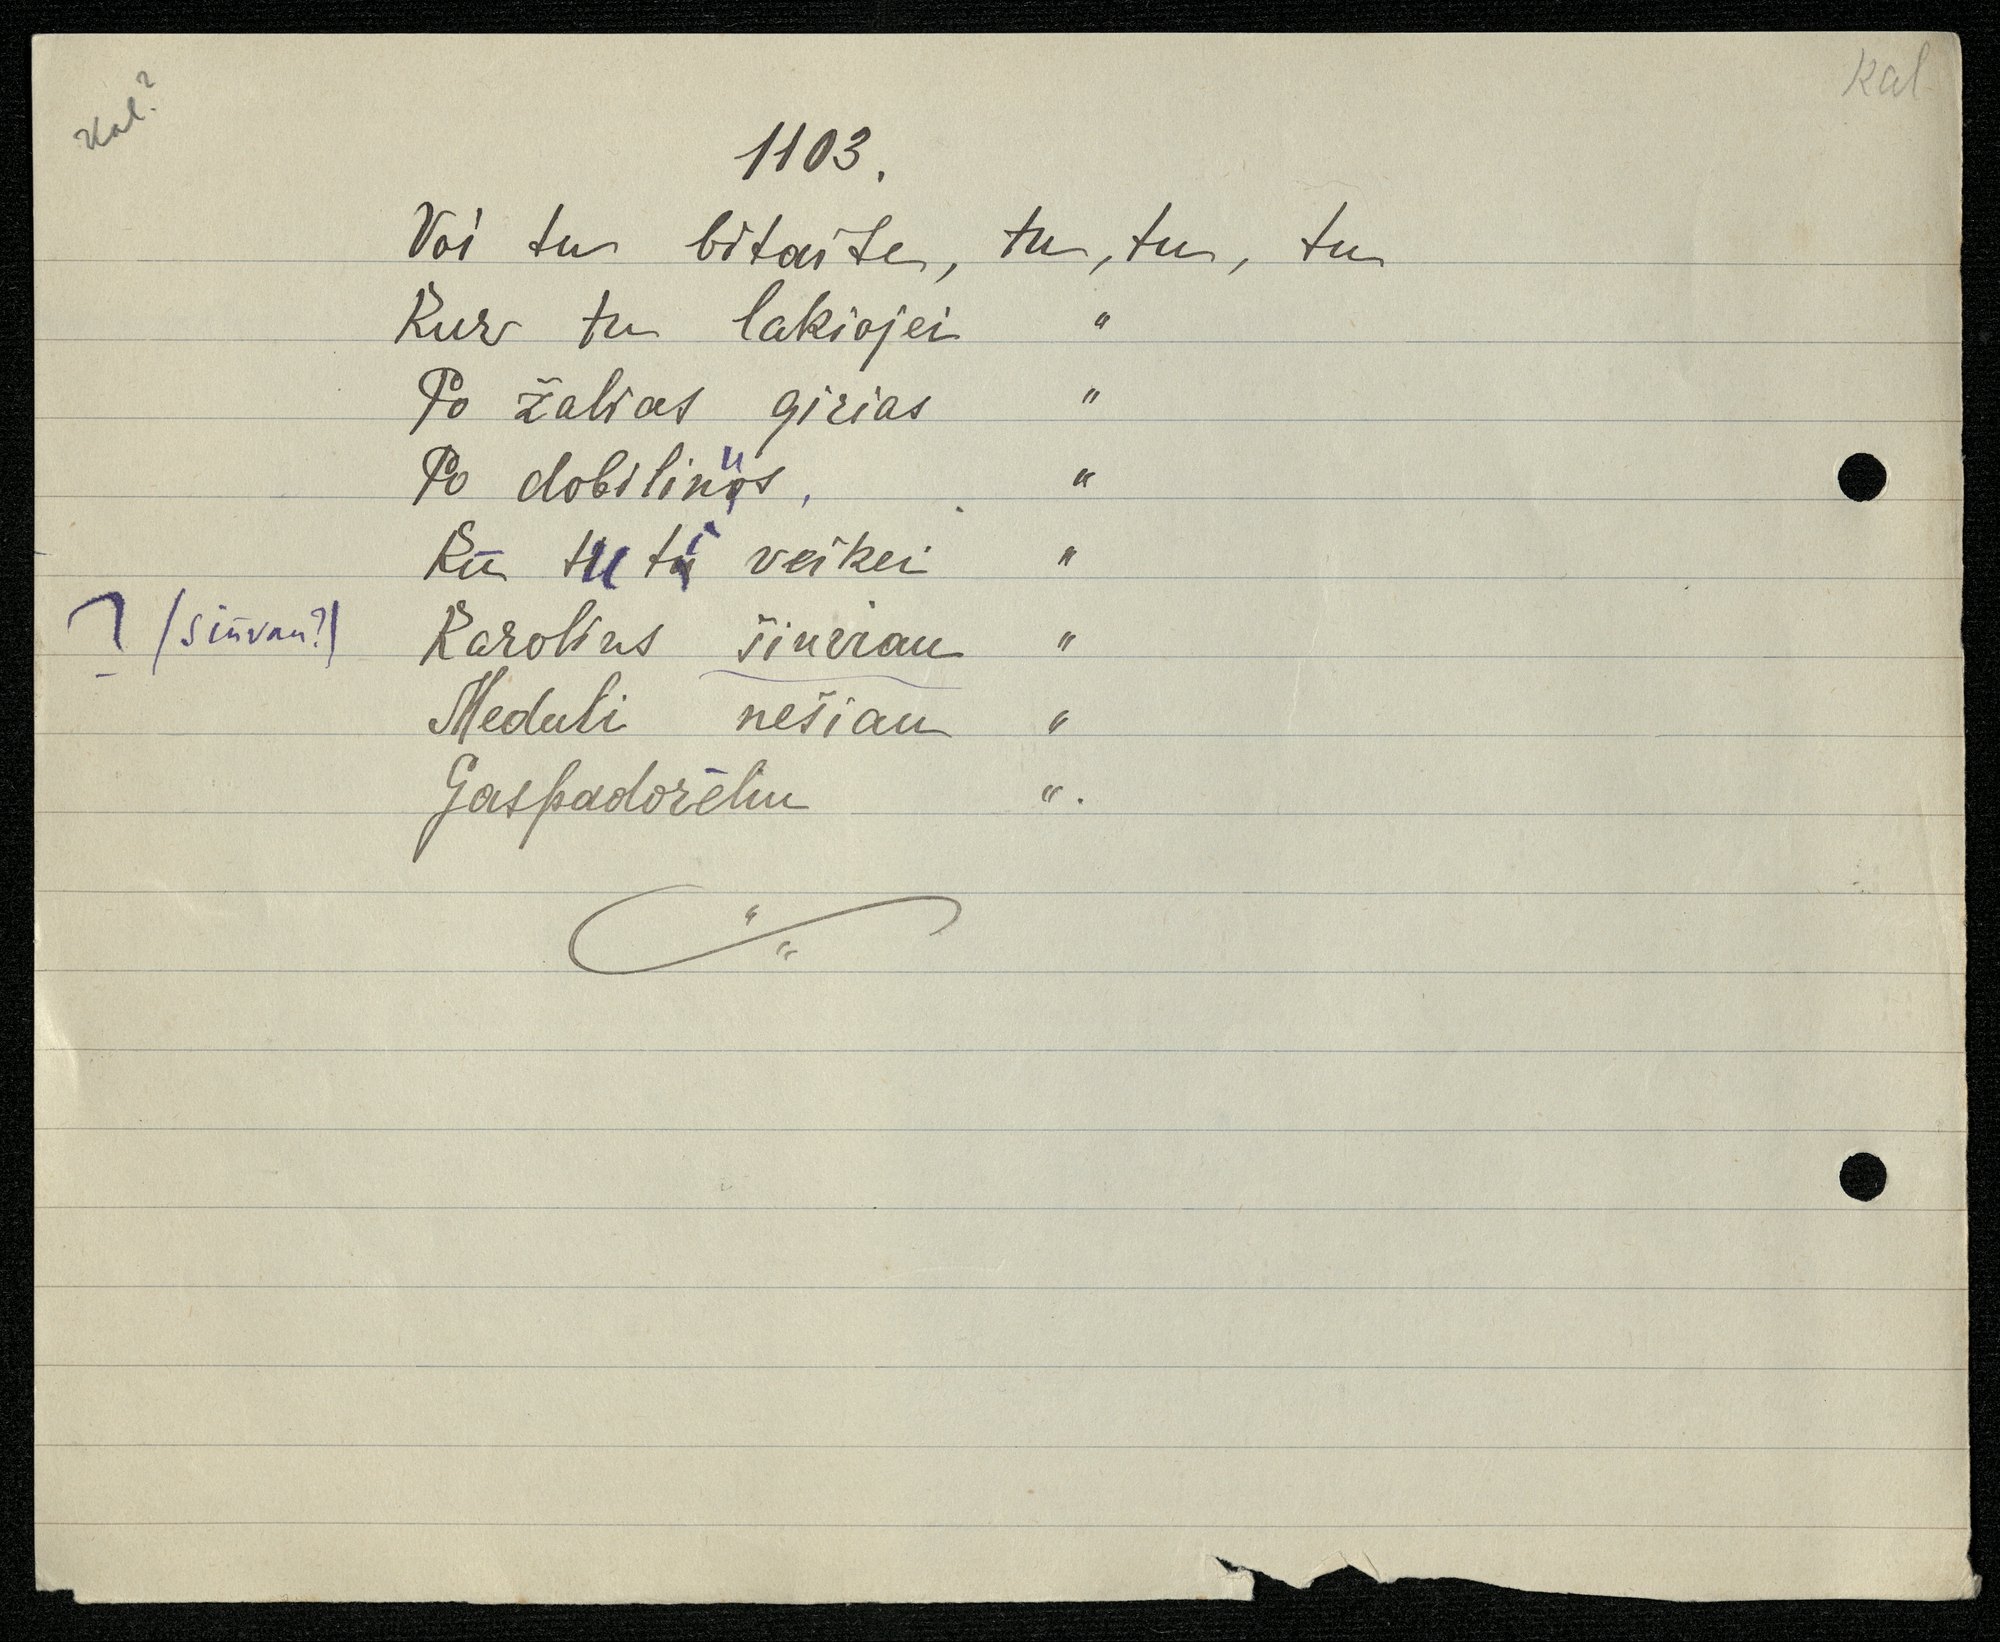 Kal?
Kal
1103.
Voi tu bitaite, tu, tu, tu
Kur tu lakiojei "
Po žalias girias "
Po dobilinus, "
Kū tu tė veikei "
? (siūvau?) Karolius "
Meduli nešiau "
Gaspadorēliu ".